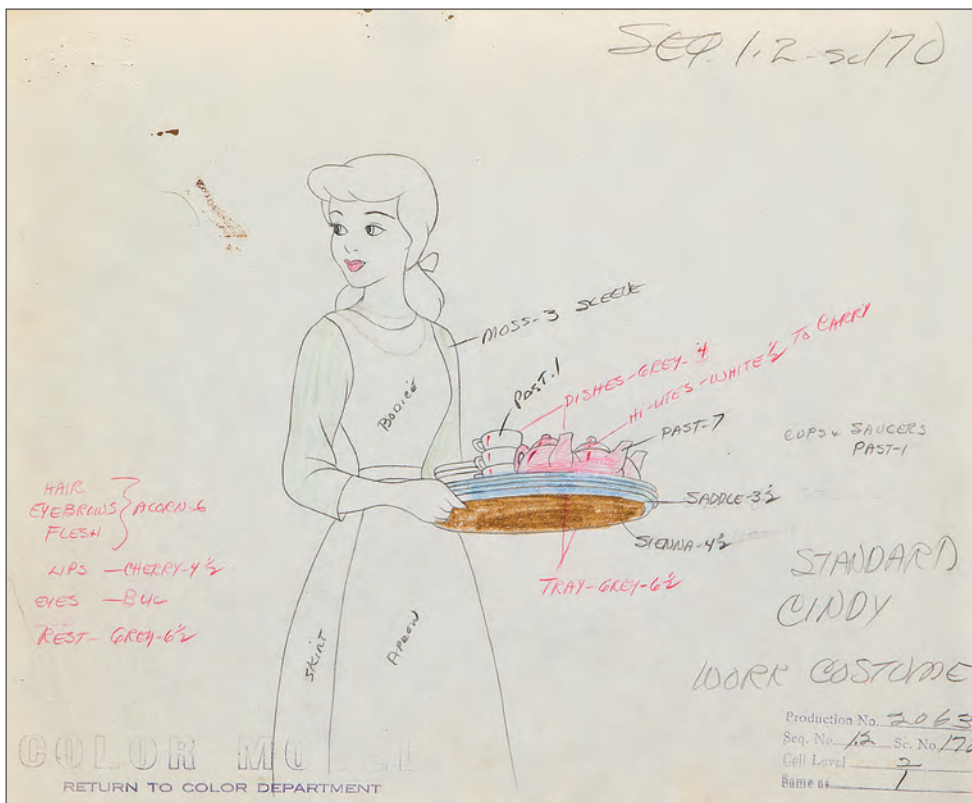 SEQ. 1.2 - sc 170
MOSS-3 SLEEVE
PAST.1
DISHES-GREY-4
HI-LITES-WHITE ½ TO CARRY
PAST-7
CUPS & SAUCERS
PAST-1
BODICE
SADDLE-3½
SIENNA-4½
TRAY-GREY-6½
HAIR
EYEBROWS
FLESH
ACORN-6
LIPS - CHERRY-4½
EYES - BLK
REST - GREY-6½
SKIRT
APRON
STANDARD
CINDY
WORK COSTUME
Production No. 2063
Seq. No. 1.2 Sc. No. 170
Cell Level 2
Same as 1
COLOR MODEL
RETURN TO COLOR DEPARTMENT